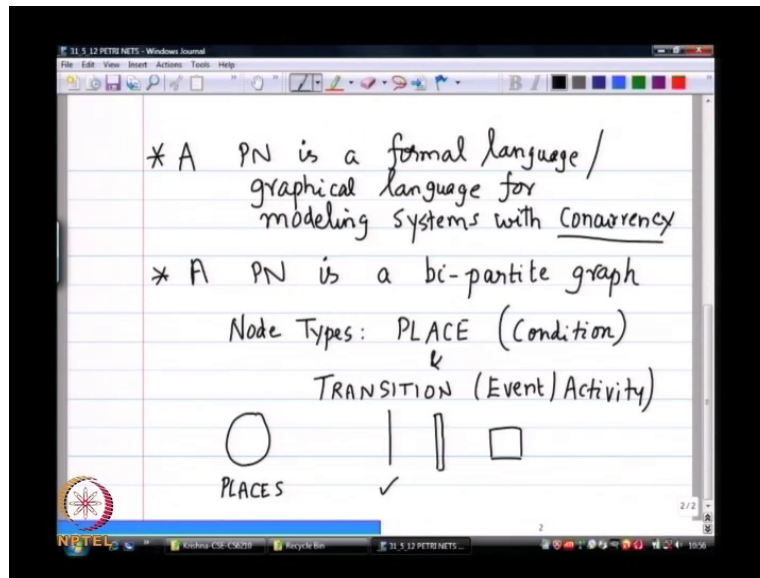 31_5_12 PETRI NETS - Windows Journal
File Edit View Insert Actions Tools Help
B I
* A PN is a formal language /
graphical language for
modeling systems with Concurrency
* A PN is a bi-partite graph
Node Types: PLACE (Condition)
&
TRANSITION (Event/Activity)
PLACES
2/2
2
NPTEL
Krishna-CSE-CS6210 Recycle Bin 31_5_12 PETRI NETS ... 10:56